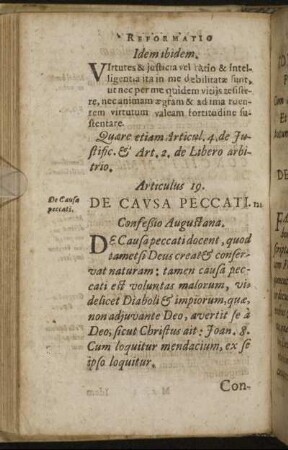 REFORMATIO
Idem ibidem.
VIrtutes & justicia vel ratio & Intel-
ligentia ita in me debilitatæ sunt,
ut nec per me quidem vitijs resiste-
re, nec animam ægram & ad ima ruen-
tem virtutum valeam fortitudine su-
stentare.
Quare etiam Articul. 4. de Ju-
stific. & Art. 2. de Libero arbi-
trio.
Articulus 19.
De Causa
peccati.
DE CAVSA PECCATI.
Confessio Augustana.
DE Causa peccati docent, quod
tametsi Deus creat & conser-
vat naturam: tamen causa pec-
cati est voluntas malorum, vi-
delicet Diaboli & impiorum, quæ,
non adjuvante Deo, avertit se à
Deo, sicut Christus ait: Joan. 8.
Cum loquitur mendacium, ex se
ipso loquitur.
Con-